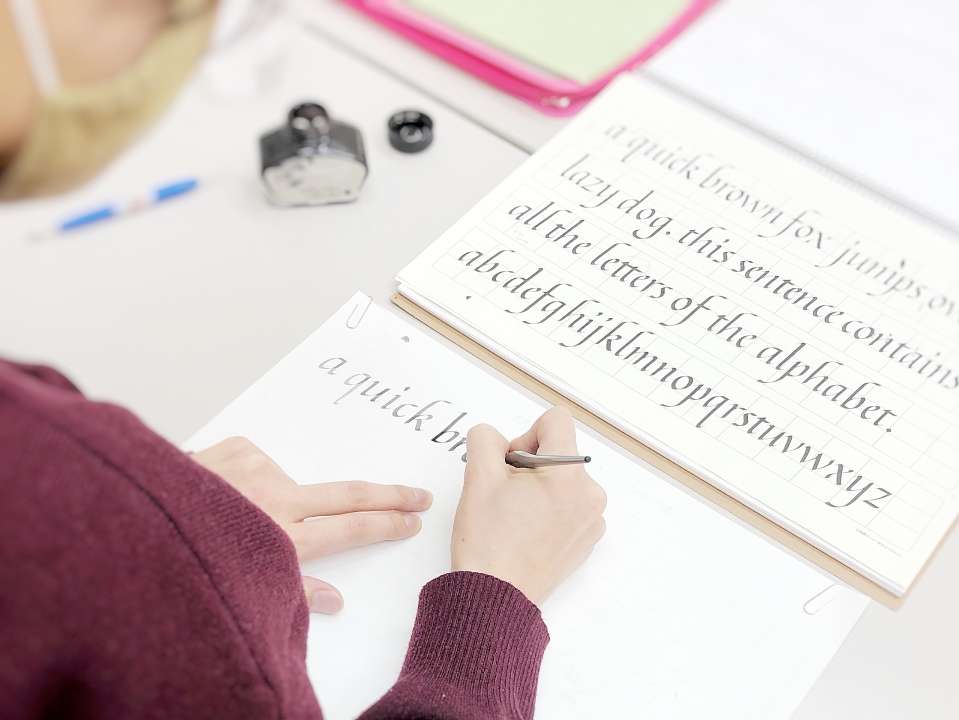 a quick brown fox jumps ov
lazy dog. this sentence contains
all the letters of the alphabet.
abcdefghijklmnopqrstuvwxyz
a quick br